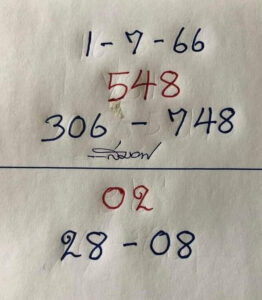 1-7-66
548
306 - 748
02
28 - 08